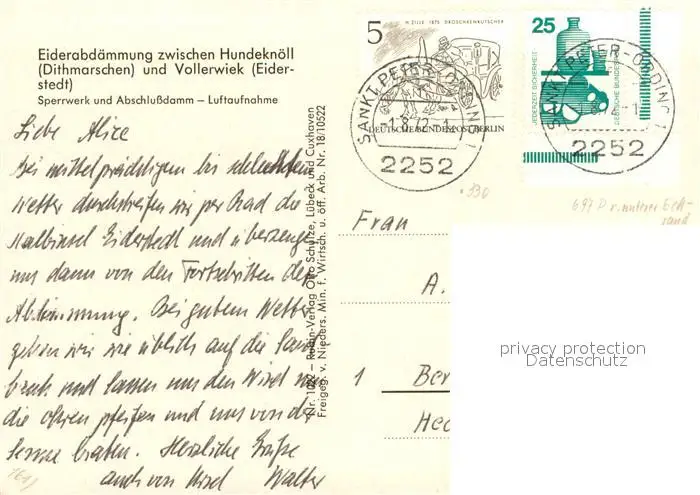 Eiderabdämmung zwischen Hundeknöll
(Dithmarschen) und Vollerwiek (Eider-
stedt)
Sperrwerk und Abschlußdamm – Luftaufnahme
Liebe Alice
Bei mittelprächtigen bis schlechtem
Wetter durchstreifen wir per Rad die
Halbinsel Eiderstedt und überzeugen
uns dann von den Fortschritten der
Abdämmung. Bei gutem Wetter
gehen wir wie üblich auf die Sand
bank und lassen uns den Wind um
die Ohren pfeifen und uns von der
Sonne braten. Herzliche Grüße
auch von Walter
Nr. 1022 – Rubin-Verlag Otto Schulze, Lübeck und Cuxhaven
Freigeg. v. Nieders. Min. f. Wirtsch. u. öff. Arb. Nr. 18/10522
5
H. ZILLE 1875 DROSCHKENKUTSCHER
DEUTSCHE BUNDESPOST BERLIN
25
JEDERZEIT SICHERHEIT
DEUTSCHE BUNDESPOST
SANKT PETER-ORDING 1
-1.8.72-1
2252
SANKT PETER-ORDING 1
2252
330
697 D r. unterer Eck-
rand
Frau
A.
1 Ber
Hec
privacy protection
Datenschutz